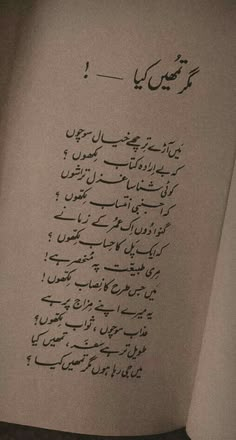 مگر تمُھیں کیا — !
میَں آڑے ترچھے خیال سوچوں
کہ بے ارادہ کتاب لکھوں ؟
کوئی شناسا غزل تراشوں
کہ اجنبی انتساب لکھوں ؟
گنوا دوں اک عُمر کے زمانے
کہ ایک پل کا حساب لکھوں ؟
مری طبیعت پہ منحصر ہے !
میں جس طرح کا نصاب لکھوں !
یہ میرے اپنے مزاج پر ہے
عذاب سوچوں ، ثواب لکھوں ؟
طویل تر ہے سفر ، تمھیں کیا
میں جی رہا ہوں مگر تمھیں کیا ؟